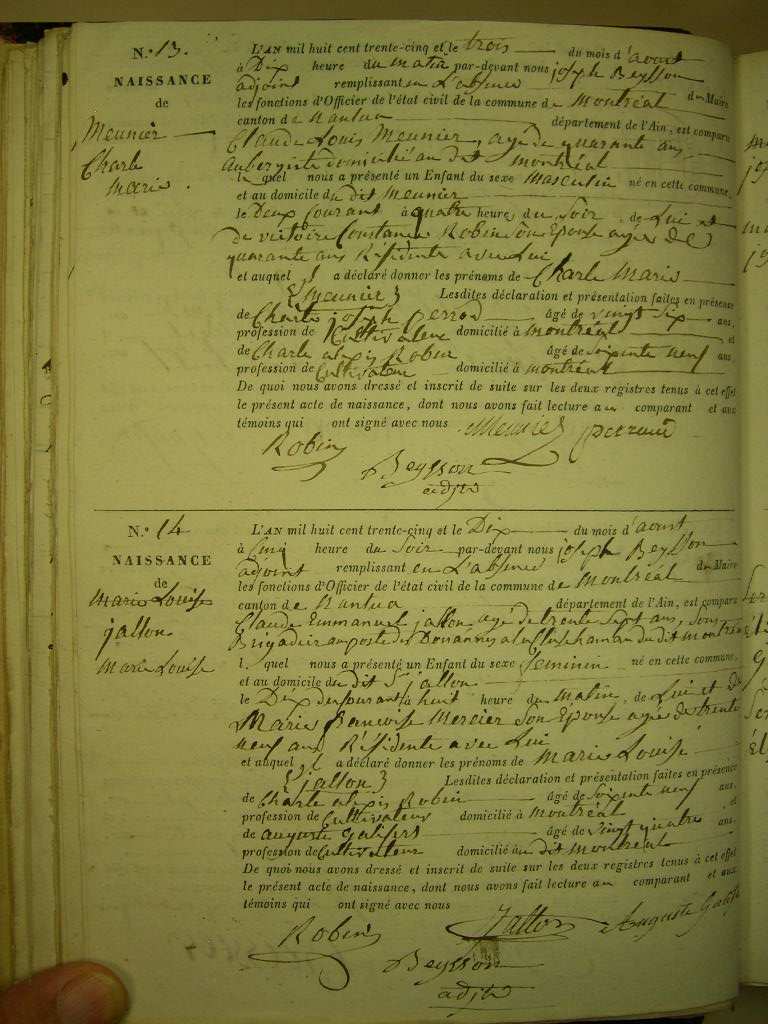 N.° 13.
NAISSANCE
de
Meunier
Charle
Marie.
L'AN mil huit cent trente-cinq et le trois du mois d'aout
à Dix heure du matin par-devant nous joseph Beysson
adjoint remplissant en L'absence du Maire
les fonctions d'Officier de l'état civil de la commune de Montréal
canton de Nantua département de l'Ain, est comparu
Claude Louis Meunier, agé de quarante ans,
Aubergiste domicilié au dit montréal
le quel nous a présenté un Enfant du sexe masculin né en cette commune,
et au domicile du dit Meunier
le Deux Courant à quatre heure, du Soir, de Lui et
de victoire Constance Robin son Epouse agée de
quarante ans Résidente avec Lui
et auquel il a déclaré donner les prénoms de Charle Marie
(meunier) Lesdites déclaration et présentation faites en présence
de Charle joseph perrod âgé de vingt Six ans,
profession de Cultivateur domicilié à montréal et
de Charle alexis Robin âgé de soixente neuf ans
profession de Cultivateur domicilié à montréal
De quoi nous avons dressé et inscrit de suite sur les deux registres tenus à cet effet
le présent acte de naissance, dont nous avons fait lecture au comparant et aux
témoins qui ont signé avec nous. Meunier perraud
Robin
Beysson
adjt
N.° 14
NAISSANCE
de
Marie Louise
jallon
Marie Louise
L'AN mil huit cent trente-cinq et le Dix du mois d'aout
à Cinq heure du Soir par-devant nous joseph Beysson
adjoint remplissant en L'absence du Maire
les fonctions d'Officier de l'état civil de la commune de Montréal
canton de Nantua département de l'Ain, est comparu
Claude Emmanuel jallon agé de trente sept ans, Sous
Brigadier au poste des Douannes a la Cluse hamau du dit montréal
l. quel nous a présenté un Enfant du sexe feminin né en cette commune,
et au domicile du dit S.r jallon
le Dix du courant à huit heure du matin, de Lui et de
Marie francoise Mercier Son Epouse agée de trente
neuf ans Résidente avec Lui
et auquel il a déclaré donner les prénoms de marie Louise
(jallon) Lesdites déclaration et présentation faites en présence
de Charle alexis Robin âgé de soixente neuf ans,
profession de Cultivateur domicilié à Montréal et
de auguste âgé de vingt quatre ans
profession de Cultivateur domicilié au dit montreal
De quoi nous avons dressé et inscrit de suite sur les deux registres tenus à cet effet
le présent acte de naissance, dont nous avons fait lecture au comparant et aux
témoins qui ont signé avec nous
Robin Jallon Auguste
Beysson
adjt